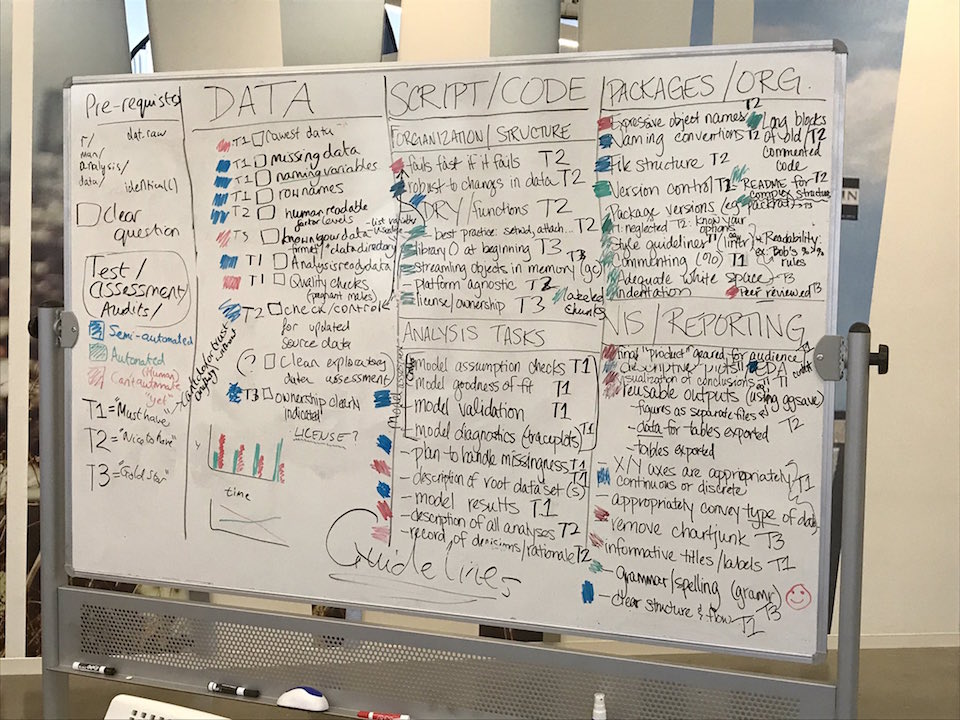 Pre-requists
dat.raw
r/
man/
analysis/
data/
identical()
Clear
question
Test/
assessment
Audits/
Semi-automated
Automated
(Human)
Can't automate
"yet"
T1 = "Must have"
T2 = "Nice to have"
T3 = "Gold star"
can't do/or trust
analysis without
DATA
T1 rawest data
T1 missing data
T1 naming variables
T1 row names
T2 human readable
factor levels
T3 know your data
- list variable
usage
formats + data directory
T1 Analysis ready data
T1 Quality checks
(pregnant males)
T2 check/control
for updated
source data
(?) Clean exploratory
data assessment
T3 ownership clearly
indicated
LICENSE?
Y
time
SCRIPT/CODE
ORGANIZATION/STRUCTURE
- fails fast if it fails T2
- robust to changes in data T2
- DRY/functions T2
- best practice: setwd, attach... T2
- library() at beginning T3
- streamlining objects in memory (gc) T3
- platform agnostic T2
- license/ownership T3
labeled
chunks
ANALYSIS TASKS
- model assumption checks T1
- model goodness of fit T1
- model validation T1
- model diagnostics (traceplots) T1
- plan to handle missingness T1
- description of root data set(s) T1
- model results T1
- description of all analyses T2
- record of decisions/rationale T2
Guidelines
PACKAGES/ORG.
Expressive object names T2
Naming conventions T2
File structure T2
Version control T1
Package versions (eg packrat) T3
neglected T2: know your
options
Style guidelines (lintr) T1
Commenting (%) T1
Adequate white space T3
indentation
Long blocks
of old/ T2
commented
code
README for T2
complex structure
Readability:
ex: Bob's %>%
rules
Peer reviewed T3
VIS/REPORTING
- final "product" geared for audience T1
- descriptive plots/EDA
- visualization of conclusions T1
- reusable outputs (using ggsave)
- figures as separate files
- data for tables exported
T2
- tables exported
- X/Y axes are appropriately
continuous or discrete T1
- appropriately convey type of data T1
- remove chartjunk T3
- informative titles/labels T1
- grammar/spelling (gramr) T3
- clear structure & flow T1